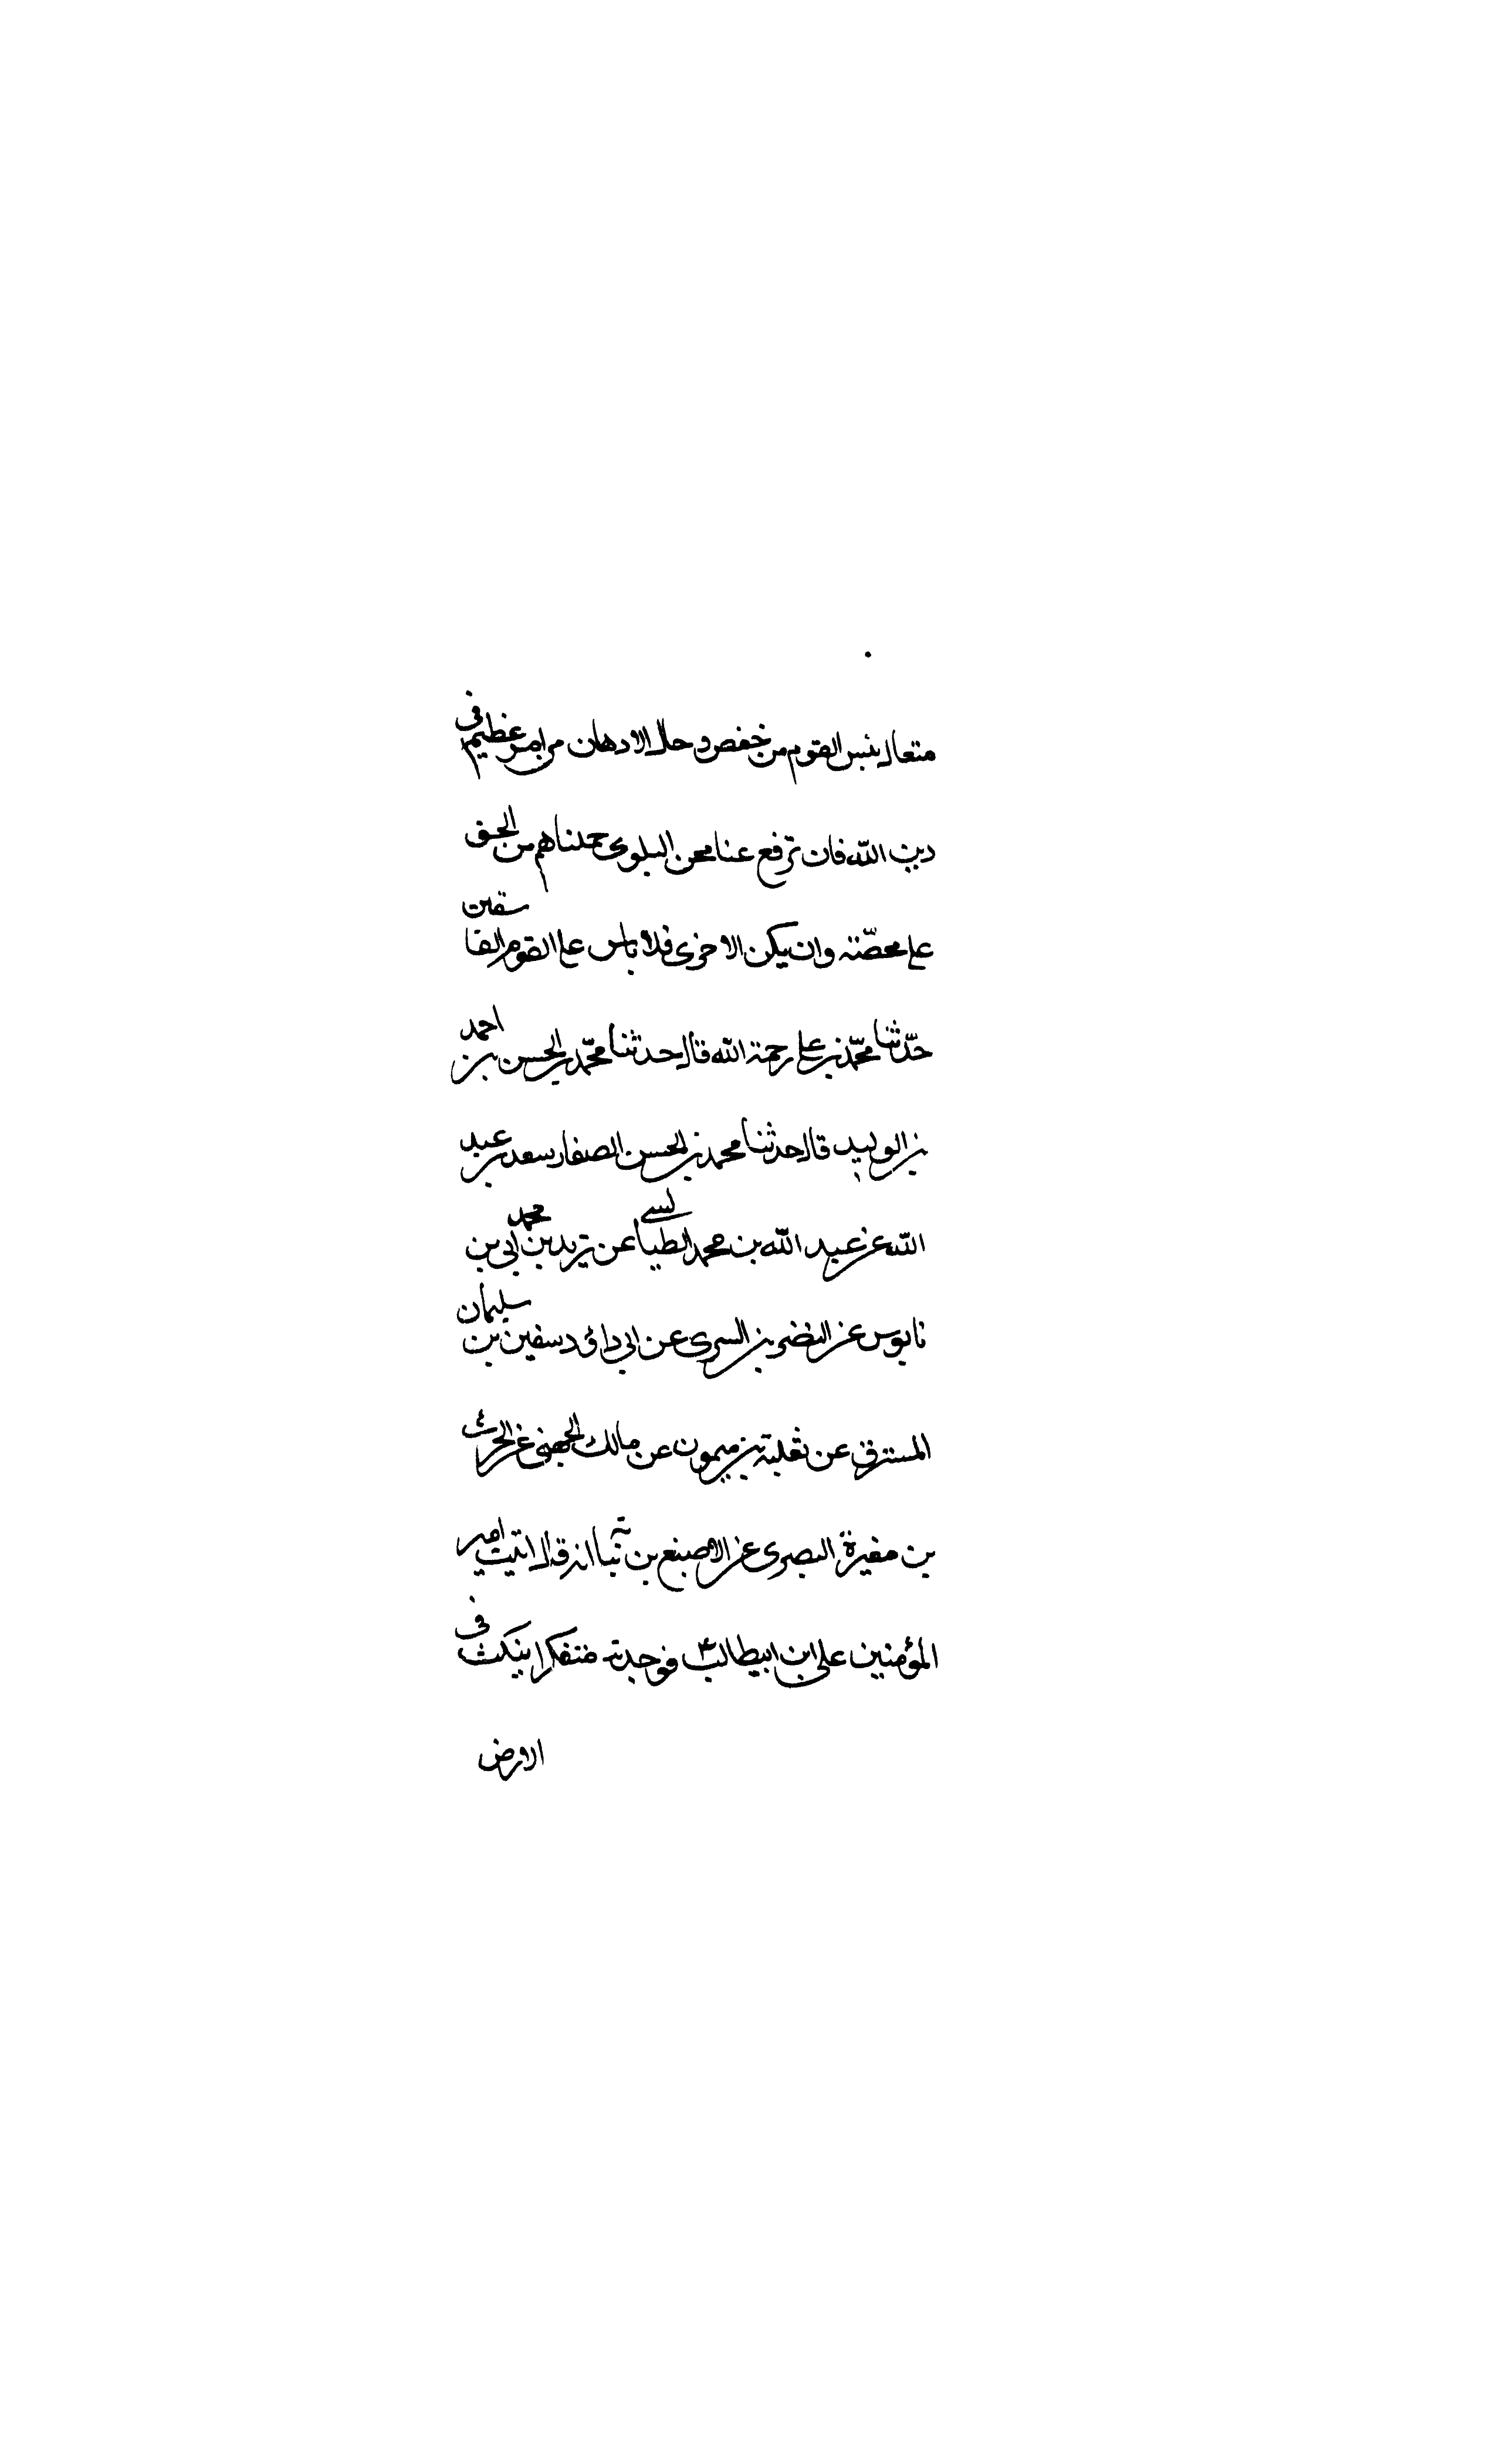 متعال بئس القوم من خفض و حال الادهان من امر عظيم في
دين الله فان ترفع عنا محن البلوى حملناهم من الحق
على محضته وان يكن الاخرى فلا باس على القوم الفاسقين
حدّثنا محمّد بن على رحمة الله قال حدثنا محمّد بن الحسن بن احمد
بن الوليد قال حدثنا محمد بن الحسن الصفار سعد بن عبد
الله عن عبد الله بن محمد الطيالسى عن زيد بن محمد ابي بن
نابوس عن النضر بن السرى عن ابى داؤد سفين بن سليمان
المسترق عن ثعلبة بن ميمون عن مالك الجهنى عن الحرث
بن مغيرة البصرى عن الاصبغ بن نباتة انه قال اتيت امير
المؤمنين على ابن ابيطالب ع فوجدته متفكرا ينكث في
الارض